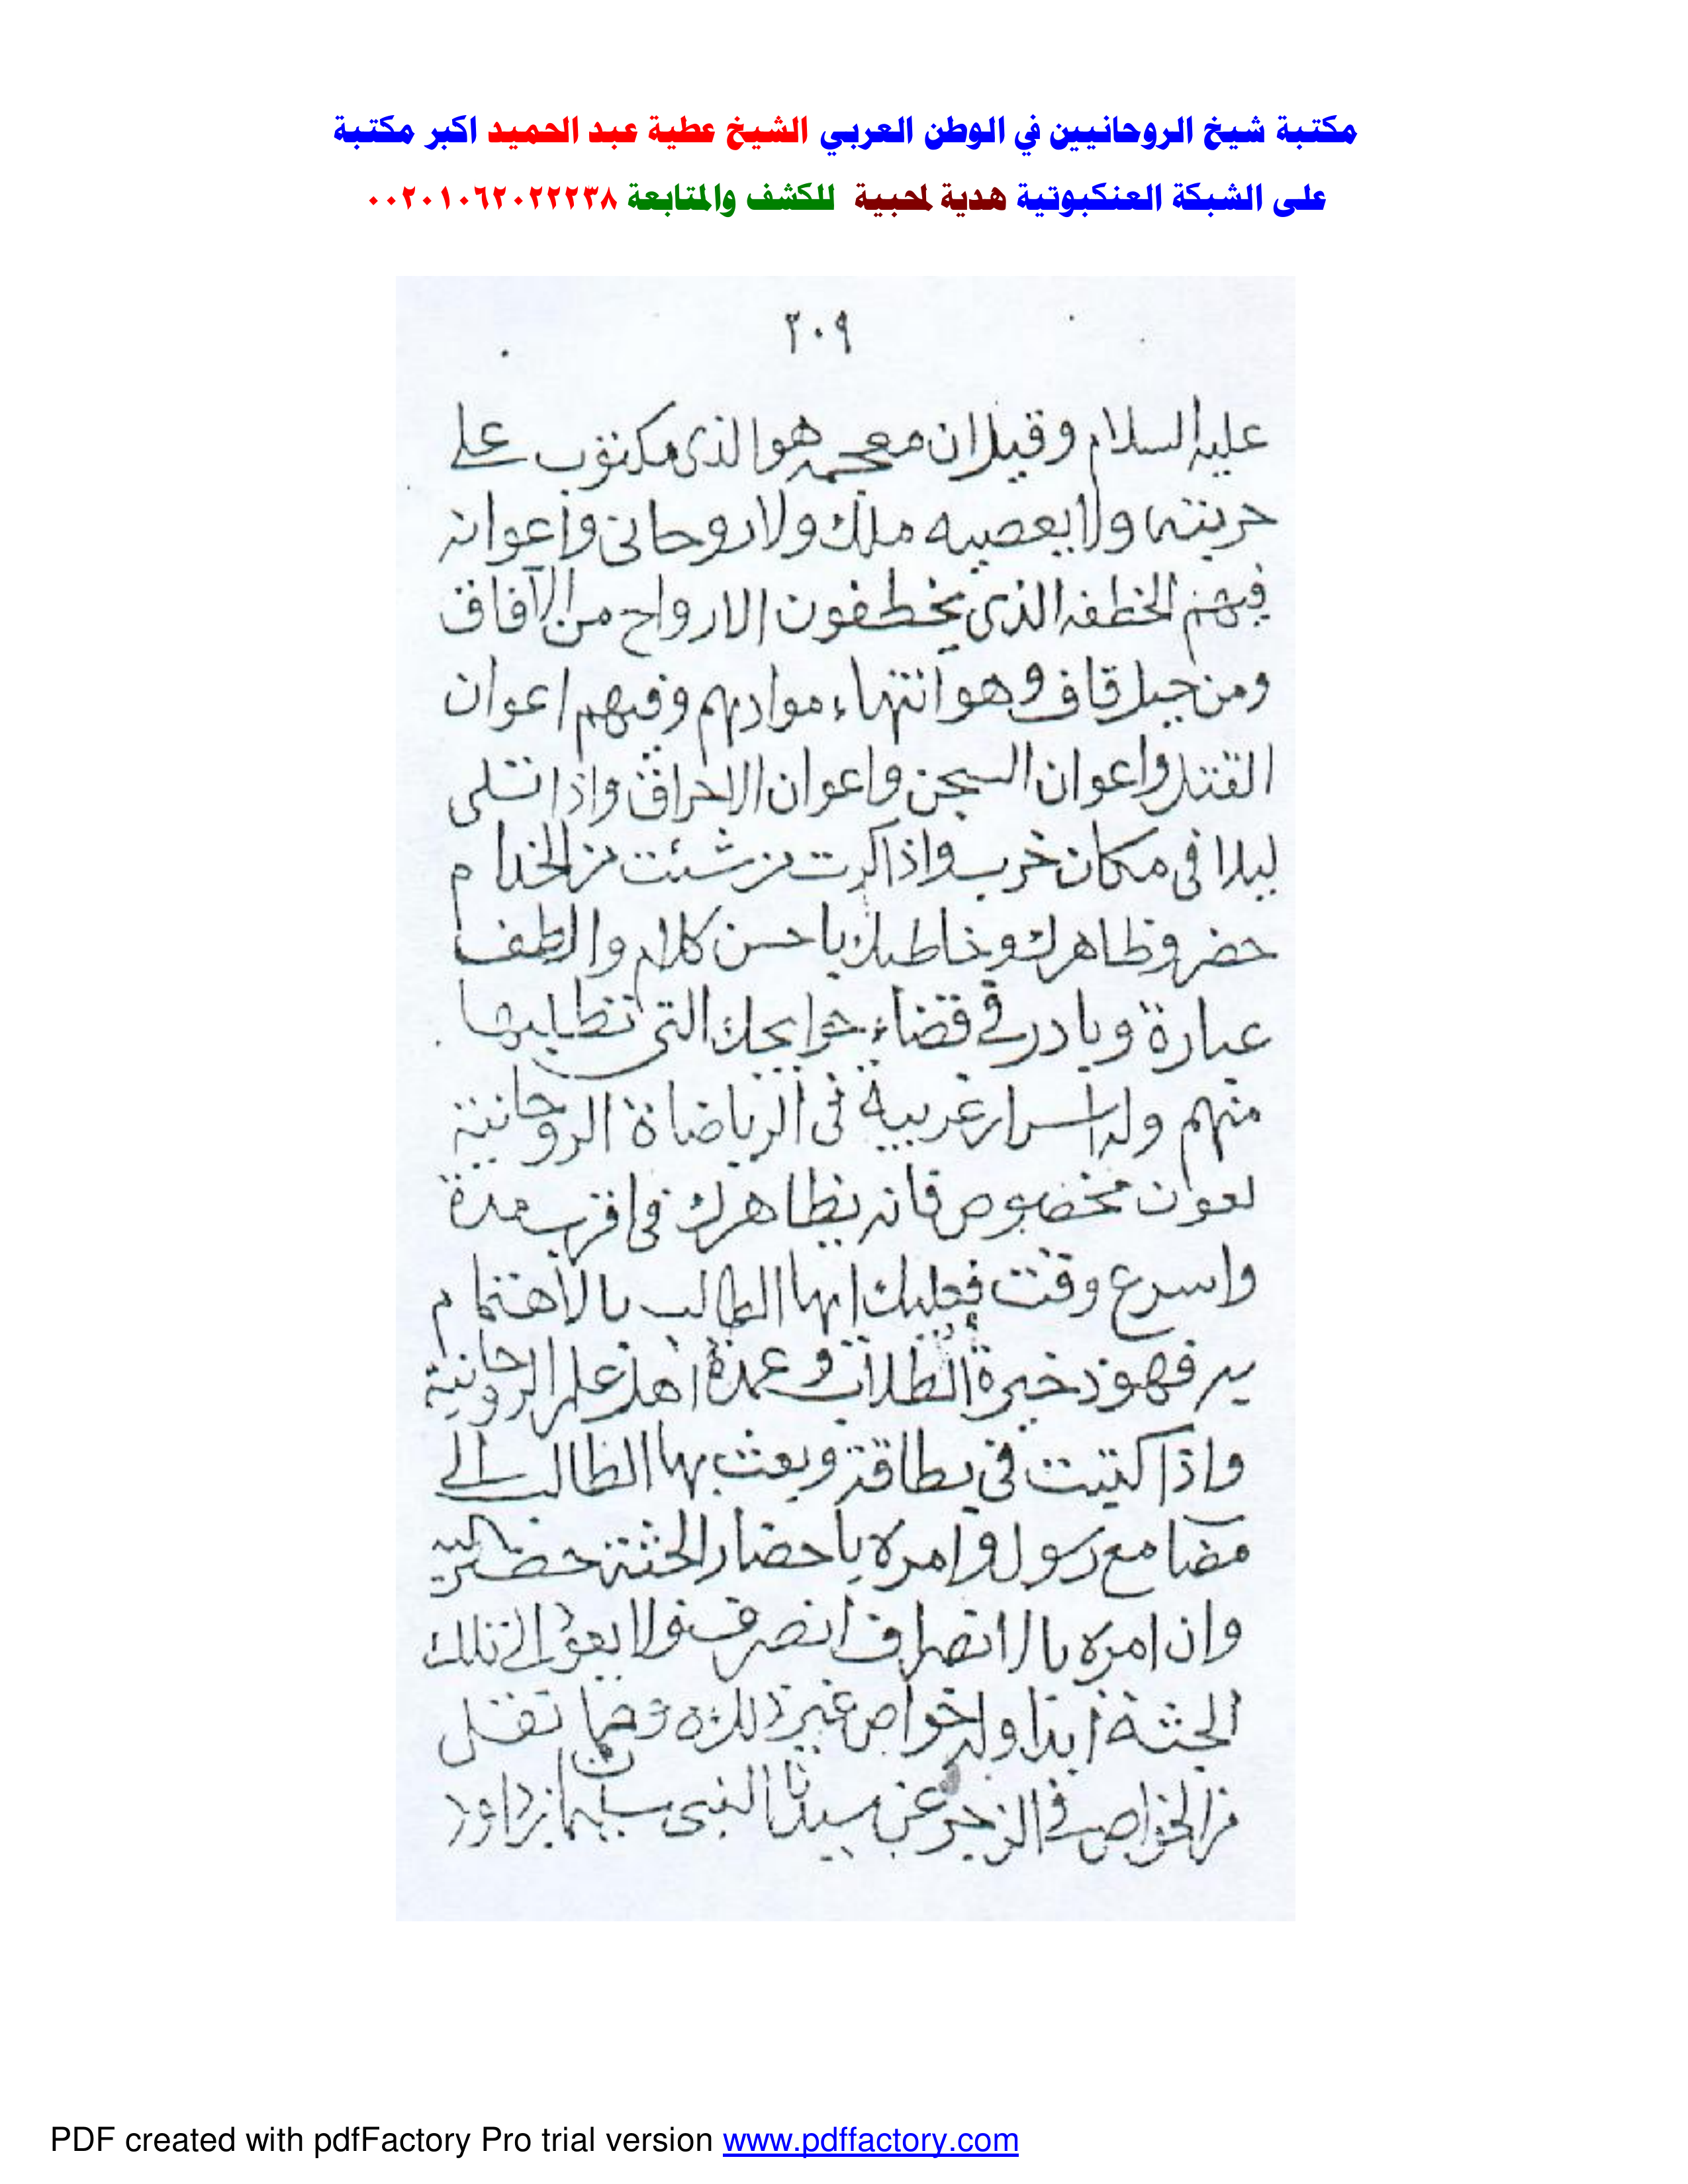 مكتبة شيخ الروحانيين في الوطن العربي الشيخ عطية عبد الحميد اكبر مكتبة
على الشبكة العنكبوتية هدية لمحبية للكشف والمتابعة ٠٠٢٠١٠٦٢٠٢٢٢٣٨
٢٠٩
عليه السلام وقيل ان معجمه هو الذى مكتوب على
حربته ولا يعصيه ملك ولا روحانى واعوانه
فيهم الخطفه الذى يخطفون الارواح من الآفاق
ومن جبل قاف وهو انتهاء موادهم وفيهم اعوان
القتل واعوان السجن واعوان الاحراق واذا تتلى
ليلا فى مكان خرب واذا كرت من شئت من الخدام
حضر وظاهرك وخاطبك باحسن كلام والطف
عبارة وبادر في قضاء حوايجك التى تطلبها
منهم وله اسرار غريبة فى الرياضاة الروحانية
لعون مخصوص فانه يظاهرك فى اقرب مدة
واسرع وقت فعليك ايها الطالب بالاهتمام
به فهو ذخيرة الطلاب وعمدة اهل علم الروحانية
واذا كتبت في بطاقة وبعث بها الطالب الى
مع رسول وامره باحضار الجثة
وان امره بالانصراف انصرف ولا يعود الى تلك
الجثة ابدا وله خواص غير ذلك ومما نقل
من الخواص في الزجر عن سيدنا النبى سليمان بن داود
PDF created with pdfFactory Pro trial version www.pdffactory.com